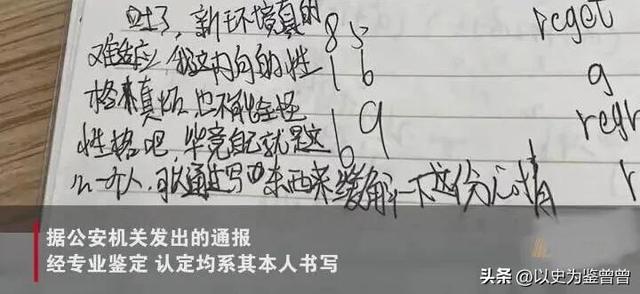 吐了,新环境真的
难适应,我这内向的性
格来真烦,也不能全怪
性格吧,毕竟自己就是这
么一个人,可以通过写中东西来缓解一下这份心情
85
16
69
reget
g
regr
据公安机关发出的通报
经专业鉴定 认定均系其本人书写
头条 @以史为鉴曾曾